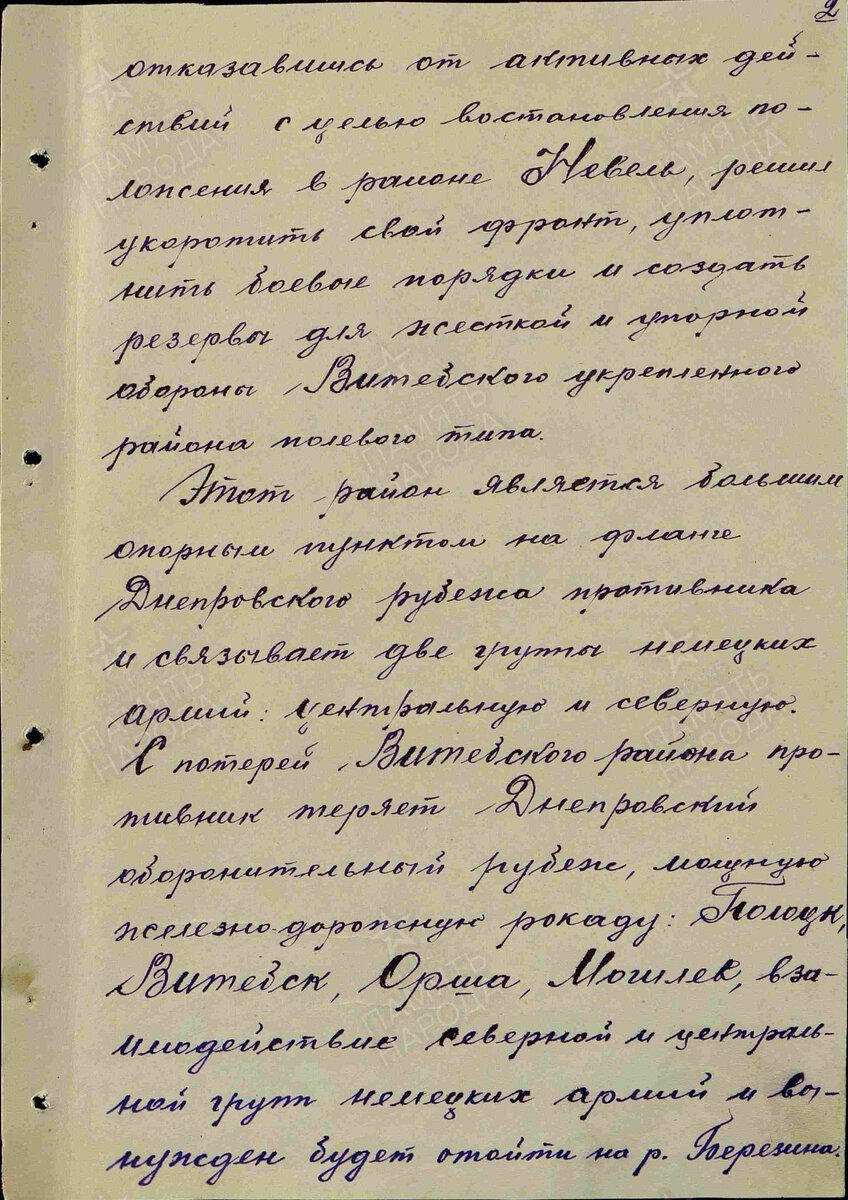 2
отказавшись от активных дей-
ствий с целью востановления по-
ложения в районе Невель, решил
укоротить свой фронт, уплот-
нить боевые порядки и создать
резервы для жесткой и упорной
обороны Витебского укрепленного
района полевого типа.
Этот район является большим
опорным пунктом на фланге
Днепровского рубежа противника
и связывает две группы немецких
армий: центральную и северную.
С потерей Витебского района про-
тивник теряет Днепровский
оборонительный рубеж, мощную
железно-дорожную рокаду: Полоцк,
Витебск, Орша, Могилев, вза-
имодействие северной и централь-
ной групп немецких армий и вы-
нужден будет отойти на р. Березина.
ПАМЯТЬ
НАРОДА
ПАМЯТЬ
НАРОДА
ПАМЯТЬ
НАРОДА
ПАМЯТЬ
НАРОДА
ПАМЯТЬ
НАРОДА
ПАМЯТЬ
НАРОДА